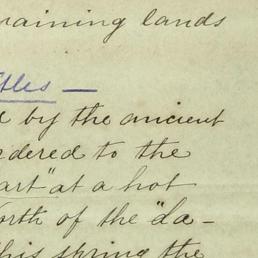 raining lands
tles —
by the ancient
rdered to the
art" at a hot
orth of the "da-
his spring the